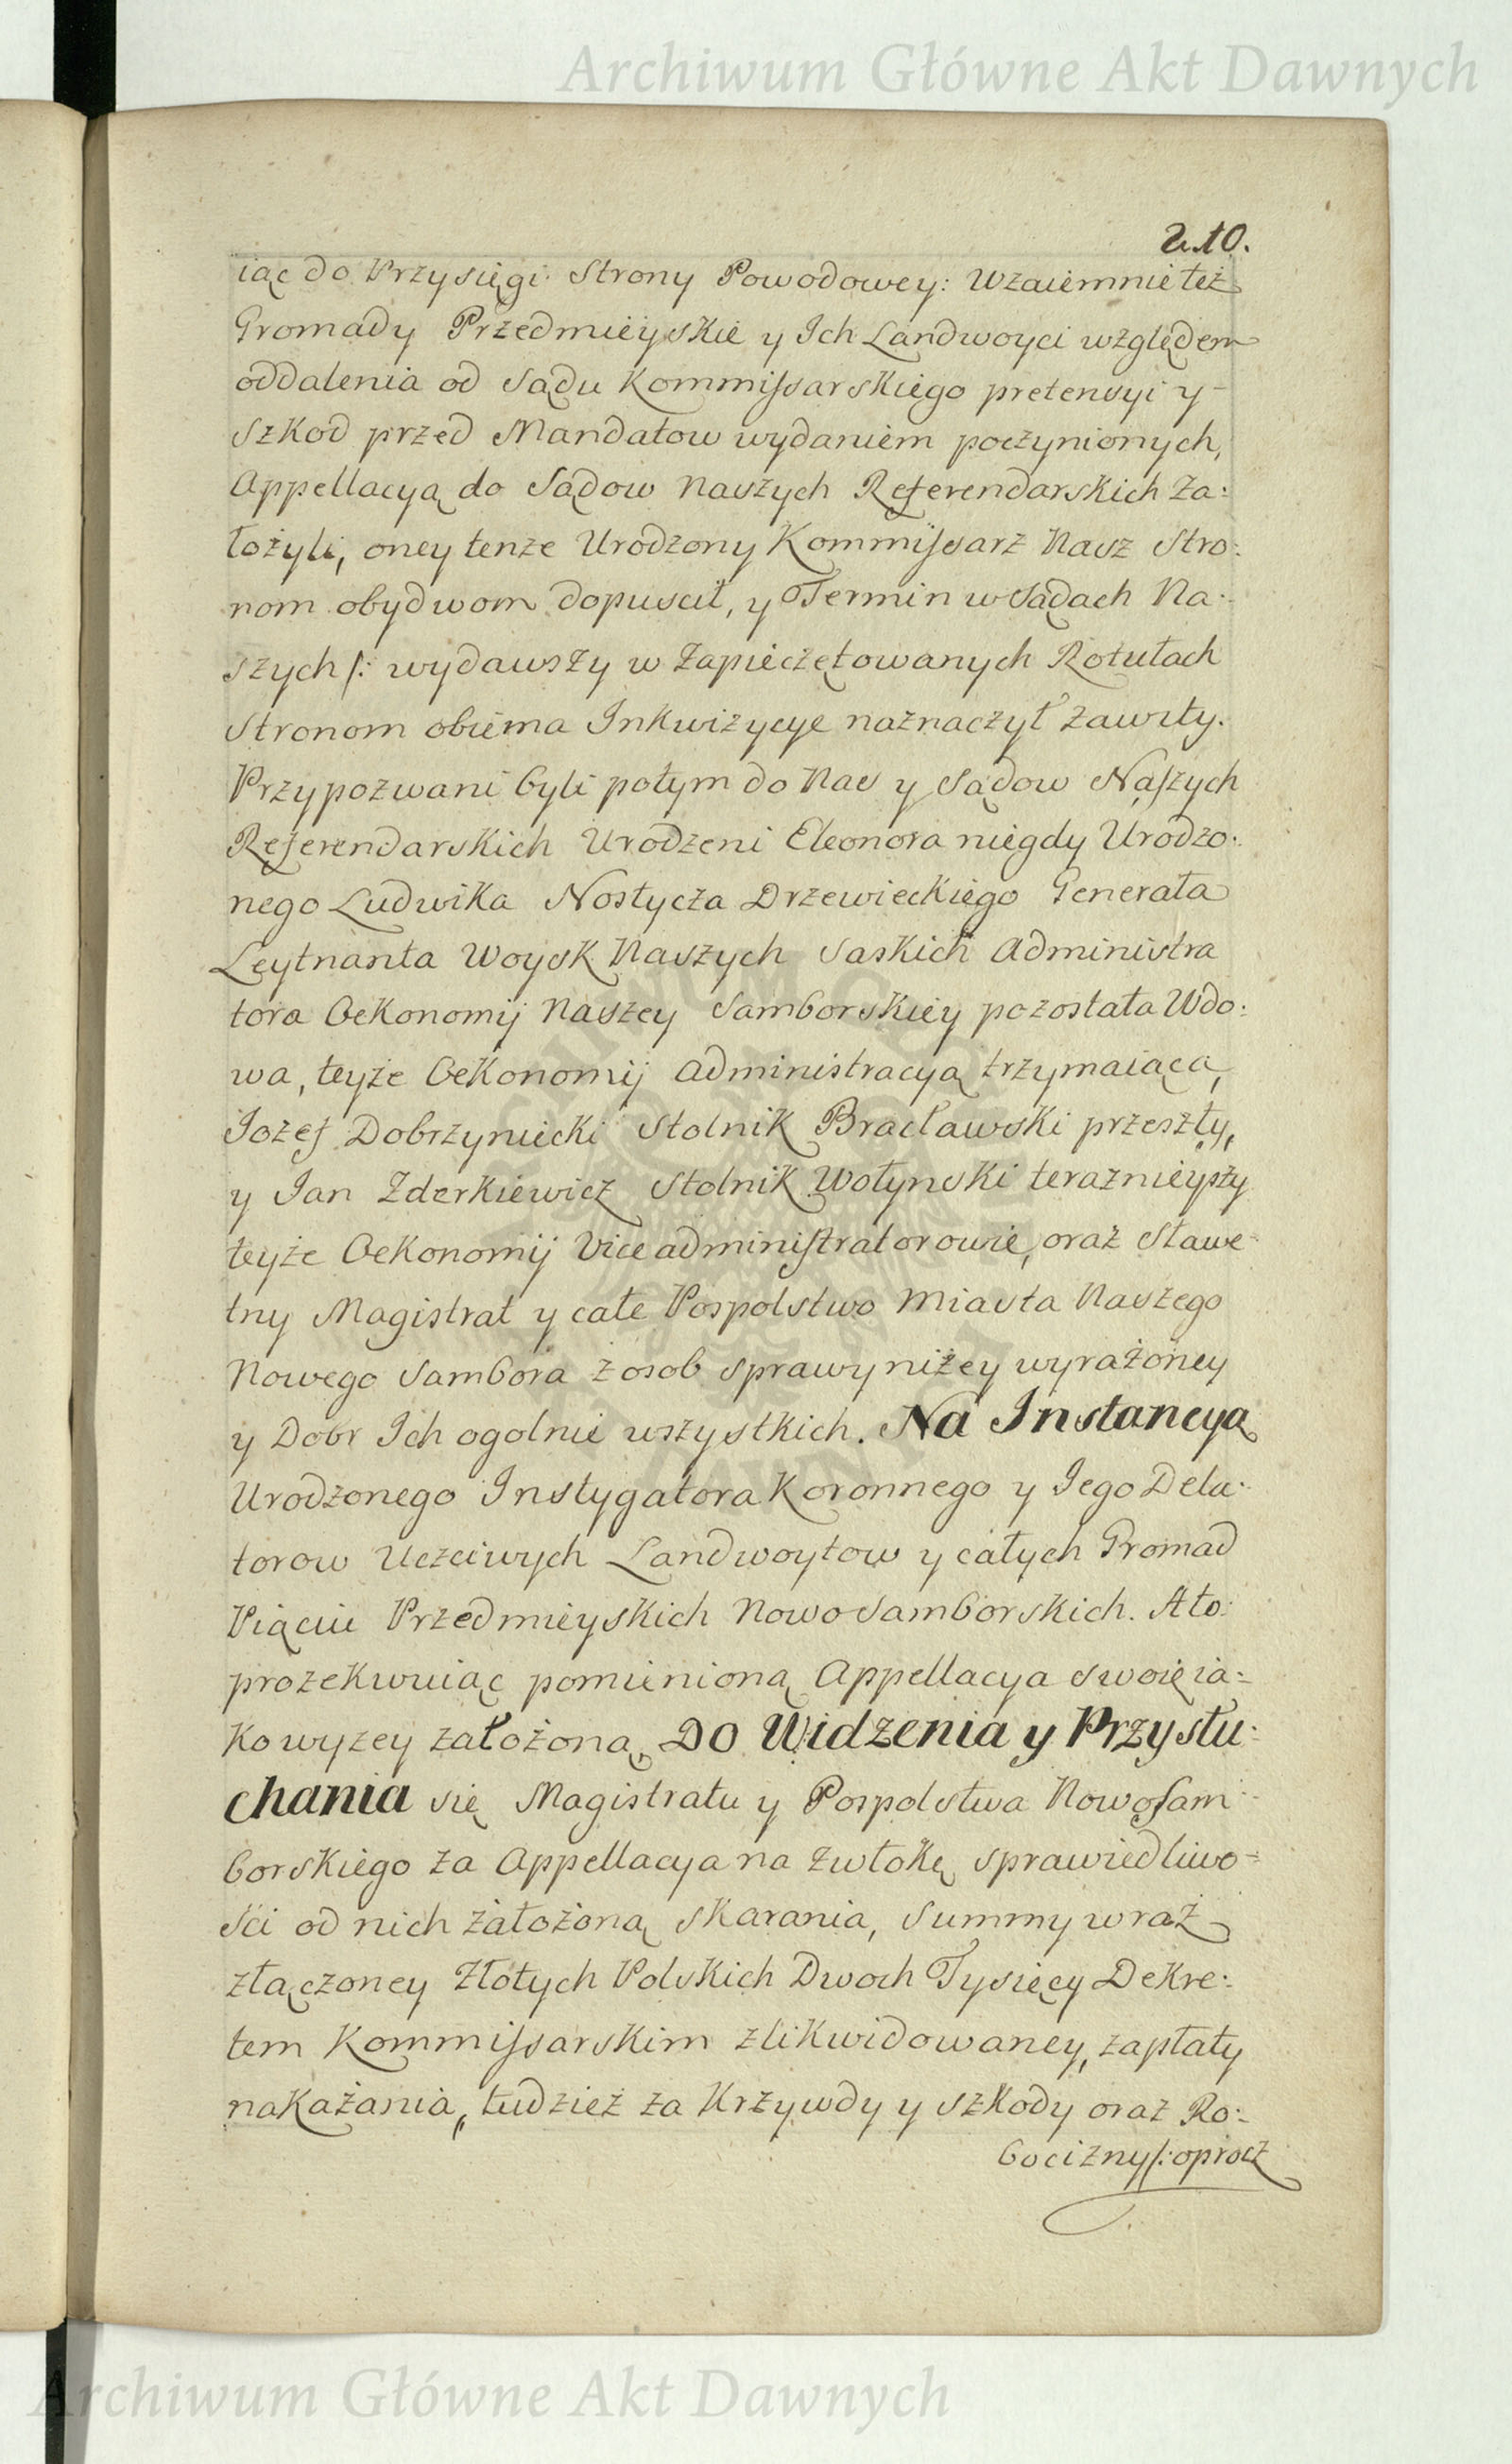 Archiwum Główne Akt Dawnych
210.
iąc do Przysięgi Strony Powodowey: Wzaiemnie też
Gromady Przedmieyskie y Ich Landwoyci względem
oddalenia od Sądu Kommissarskiego pretensyi y
Szkod przed Mandatow wydaniem poczynionych,
Appellacyą do Sądow Naszych Referendarskich za:
łożyli, oney tenże Urodzony Kommissarz Nasz Stro:
nom obydwom dopuscił, y Termin w Sądach Na:
szych /: wydawszy w zapieczętowanych Rotułach
Stronom obiema Inkwizycye naznaczył zawity.
Przypozwani byli potym do Nas y Sądow Naszych
Referendarskich Urodzeni Eleonora niegdy Urodzo:
nego Ludwika Nostycza Drzewieckiego Generała
Leytnanta Woysk Naszych Saskich Administra
tora Oekonomij Naszey Samborskiey pozostała Wdo:
wa, teyże Oekonomij Administracyą trzymaiąca,
Iozef Dobrzyniecki Stolnik Bracławski przeszły,
y Ian Zderkiewicz Stolnik Wołynski teraznieyszy
teyże Oekonomij Viceadministratorowie, oraz Sławe
tny Magistrat y całe Pospolstwo Miasta Naszego
Nowego Sambora z osob sprawy niżey wyrażoney
y Dobr Ich ogolnie wszystkich. Na Instancyą
Urodzonego Instygatora Koronnego y Iego Dela:
torow Uczciwych Landwoytow y całych Gromad
Piąciu Przedmieyskich Nowosamborskich. A to
prozekwuiąc pomienioną Appellacya swoię ia=
ko wyzey założoną, Do Widzenia y Przysłu:
chania się Magistratu y Pospolstwa Nowosam
borskiego za Appellacya na zwłokę sprawiedliwo=
ści od nich założoną skarania, Summy wraz
złączoney Złotych Polskich Dwoch Tysięcy Dekre:
tem Kommissarskim zlikwidowaney, zapłaty
nakazania, tudzież za Krzywdy y szkody oraz Ro:
bocizny /: oprocz
Archiwum Główne Akt Dawnych